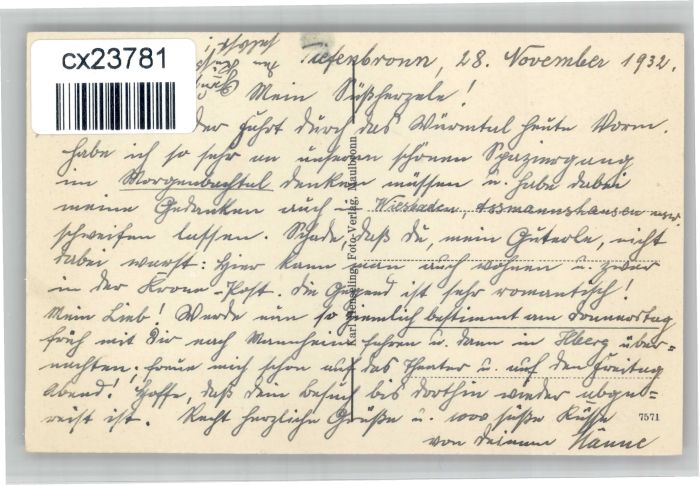 cx23781
Tiefenbronn, 28. November 1932.
Mein Süßherzele!
der Fahrt durch das Würmtal heute Vorm.
habe ich so sehr an unseren schönen Spaziergang
im Morgenbachtal denken müssen u. habe dabei
meine Gedanken auch in Wiesbaden, Assmannshausen usw.
schweifen lassen. Schade, daß Du, mein Guterle, nicht
dabei warst: Hier kann man auch wohnen u. zwar
in der Krone-Post. Die Gegend ist sehr romantisch!
Mein Lieb! Werde nun so ziemlich bestimmt am Donnerstag
früh mit Dir nach Mannheim fahren u. dann in Hberg über-
nachten; freue mich schon auf das Theater u. auf den Freitag
Abend! Hoffe, daß dein Besuch bis dorthin wieder abge-
reist ist. Recht herzliche Grüße u. 1000 süße Küsse
von deinem Hanne
Karl Henssling, Foto-Verlag, Maulbronn
7571